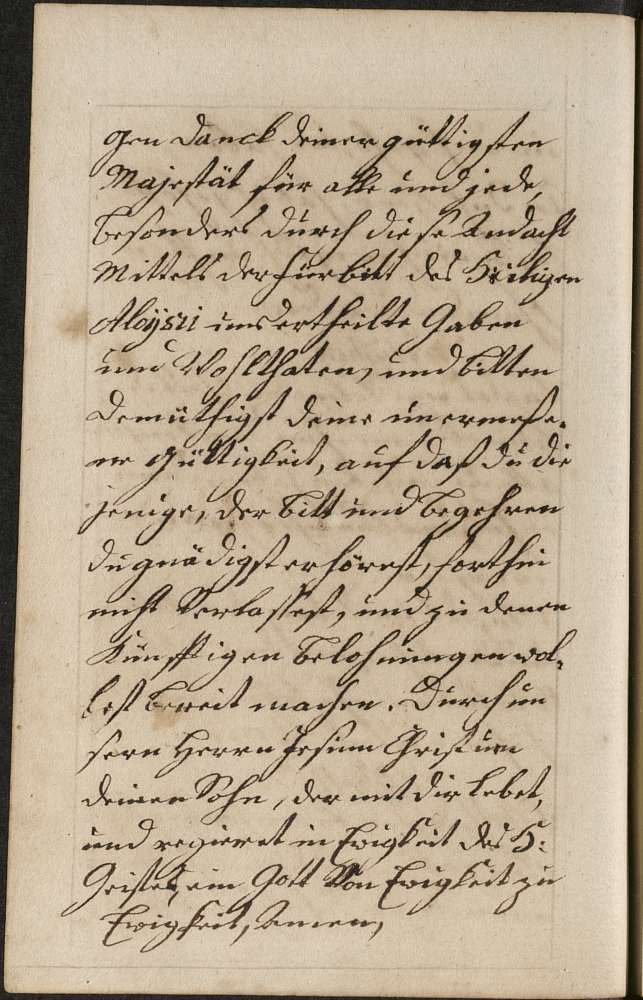 gen danck deiner güttigsten
Majestät für alle und jede,
besonders durch diese Andacht
Mittels der fürbitt des Heiligen
Aloÿsii uns ertheilte Gaben
und Wohlthaten, und bitten
demüthigst deine unermeße,
ne güttigkeit, auf daß du die
jenige, der bitt und begehren
du gnädigst erhörest, forthin
nicht Verlassest, und zu denen
Künfftigen belohnungen wol,
lest bereit machen. Durch un
sern Herrn Jesum Christum
deinen Sohn, der mit dir lebet,
und regieret in Ewigkeit des H:
Geistes, ein Gott Von Ewigkeit zu
Ewigkeit, Amen,